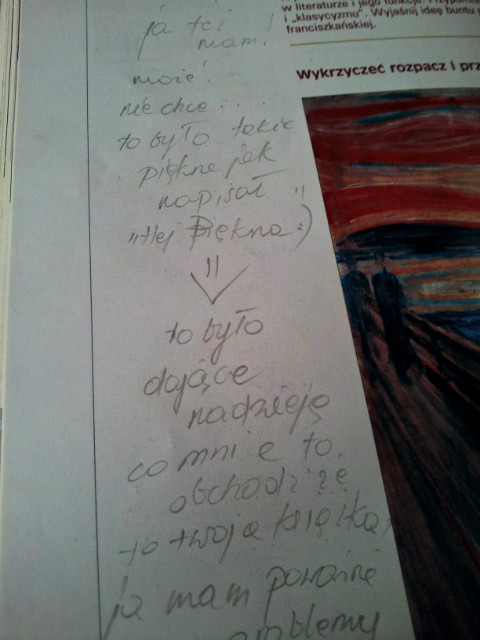 ja też
mam!
może!
nie chcę...
to było takie
piękne jak
napisał
"Hej Piękna:)"
to było
dające
nadzieję
co mnie to
obchodzi że
to twoja książka,
ja mam poważne
problemy
w literaturze i jego funkcje.
i „klasycyzmu". Wyjaśnij ideę buntu
franciszkańskiej.
Wykrzyczeć rozpacz i